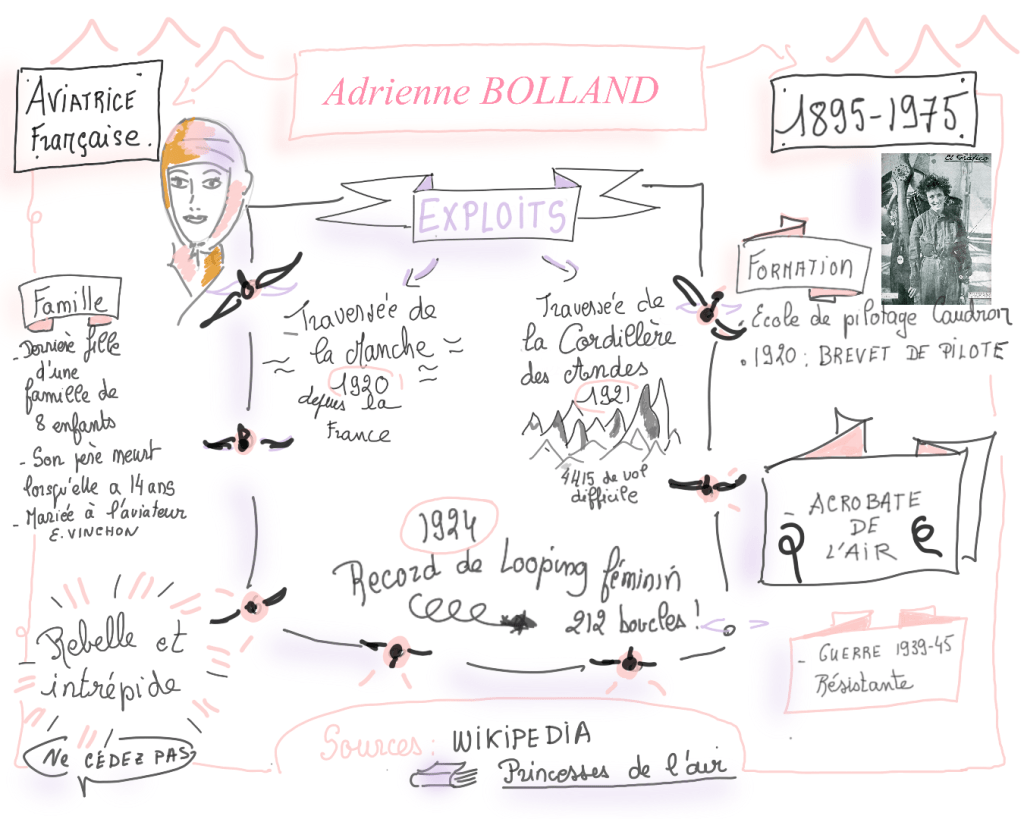 Adrienne BOLLAND
AVIATRICE
Française.
1895-1975
El Gráfico
EXPLOITS
Traversée de
la Manche
1920
depuis la
France
Traversée de
la Cordillère
des Andes
1921
4415 de vol
difficile
1924
Record de Looping féminin
212 boucles !
Famille
- Dernière fille
d'une
famille de
8 enfants
- Son père meurt
lorsqu'elle a 14 ans
- Mariée à l'aviateur
E. VINCHON
Rebelle et
intrépide
Ne CÉDEZ PAS
FORMATION
- Ecole de pilotage Caudron
. 1920 : BREVET DE PILOTE
- ACROBATE
DE
L'AIR
- GUERRE 1939-45
Résistante
Sources : WIKIPEDIA
Princesses de l'air